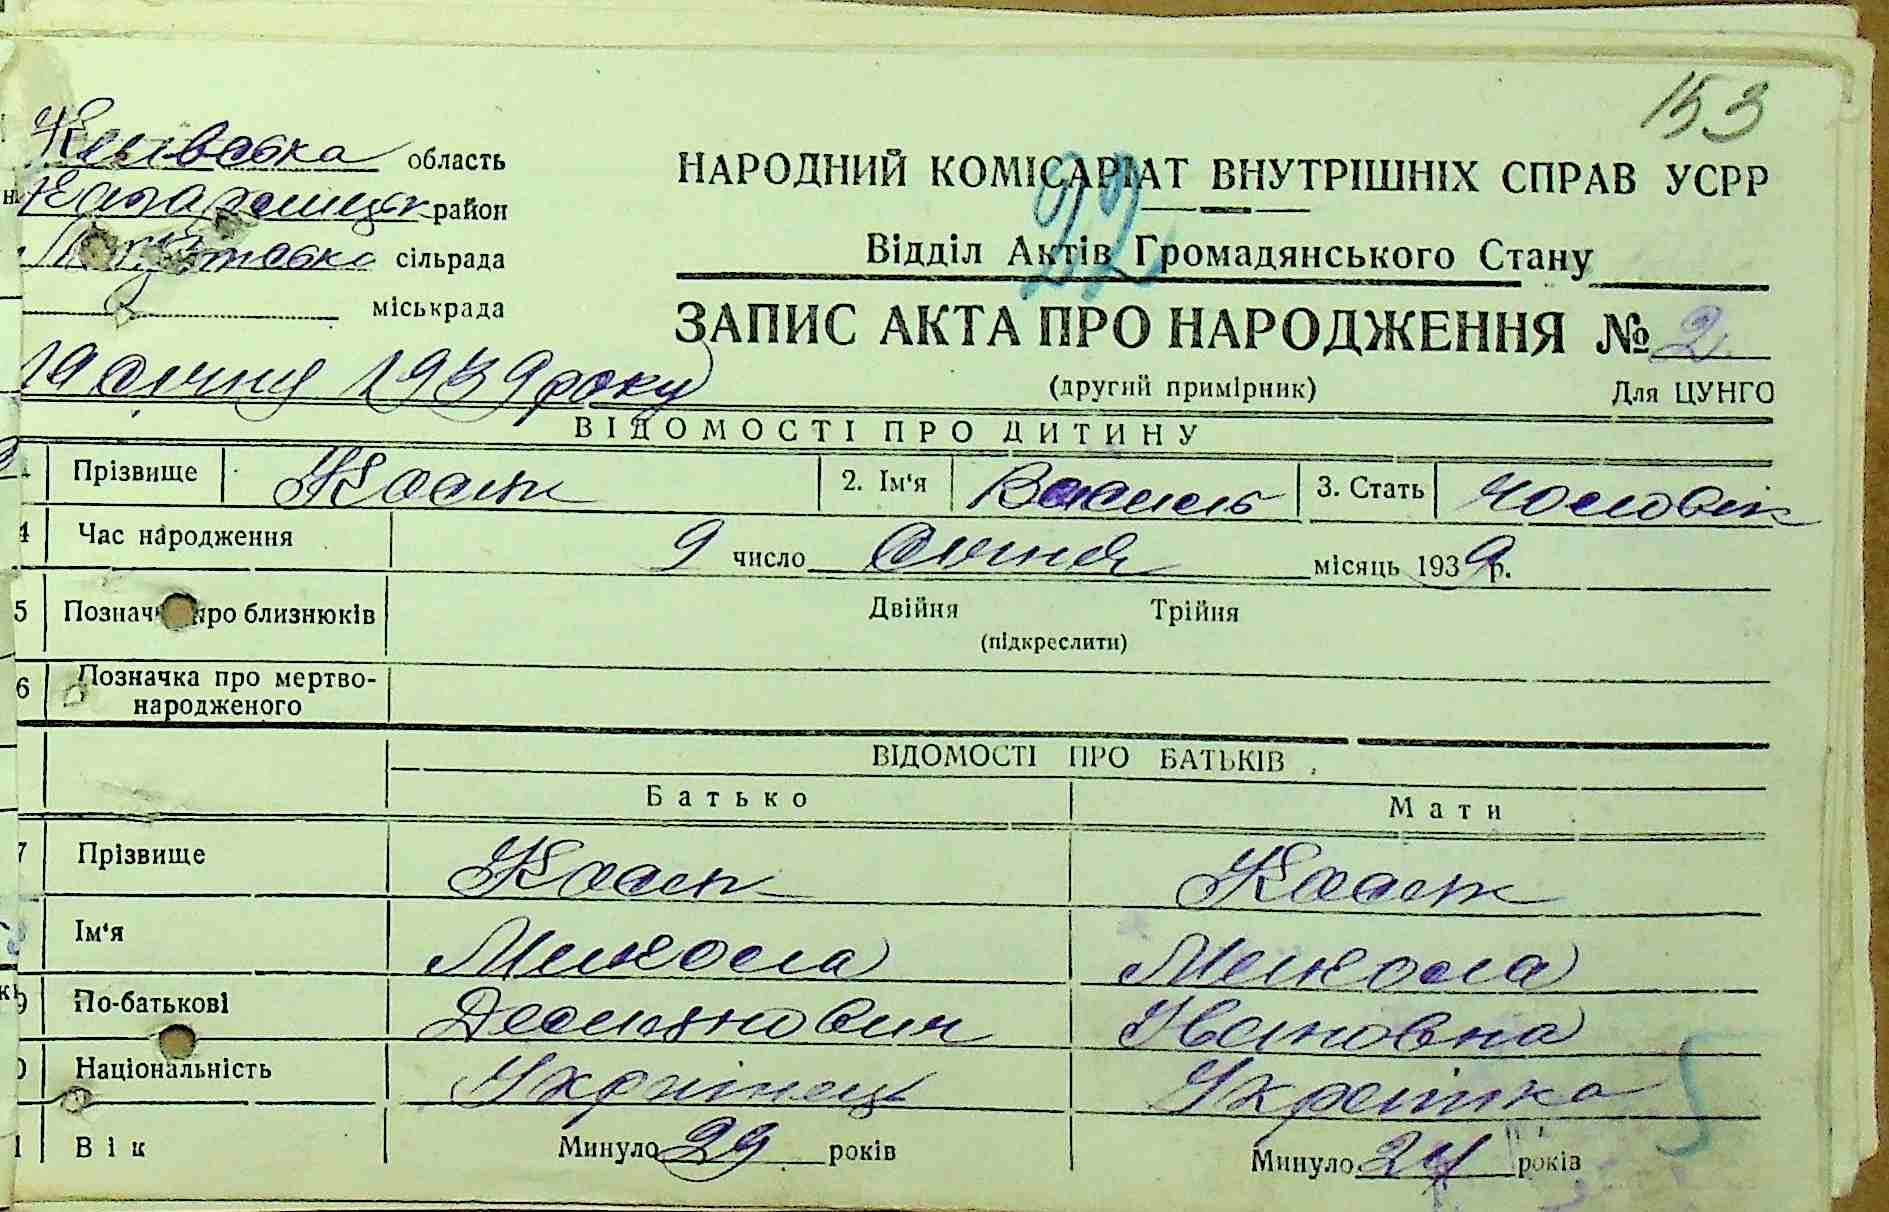 153
Київська область
НАРОДНИЙ КОМІСАРІАТ ВНУТРІШНІХ СПРАВ УСРР
район
22
Відділ Актів Громадянського Стану
сільрада
міськрада
ЗАПИС АКТА ПРО НАРОДЖЕННЯ № 2
19 січня 1939 року
(другий примірник) Для ЦУНГО
ВІДОМОСТІ ПРО ДИТИНУ
Прізвище Косяк 2. Ім'я Василь 3. Стать Чоловік
4 Час народження 9 число Січня місяць 1939 р.
5 Позначка про близнюків Двійня Трійня
(підкреслити)
6 Позначка про мертво-
народженого
ВІДОМОСТІ ПРО БАТЬКІВ
Батько Мати
7 Прізвище
Ім'я Микола Микола
9 По-батькові Івановна
Національність
1 Вік Минуло 29 років Минуло 24 років